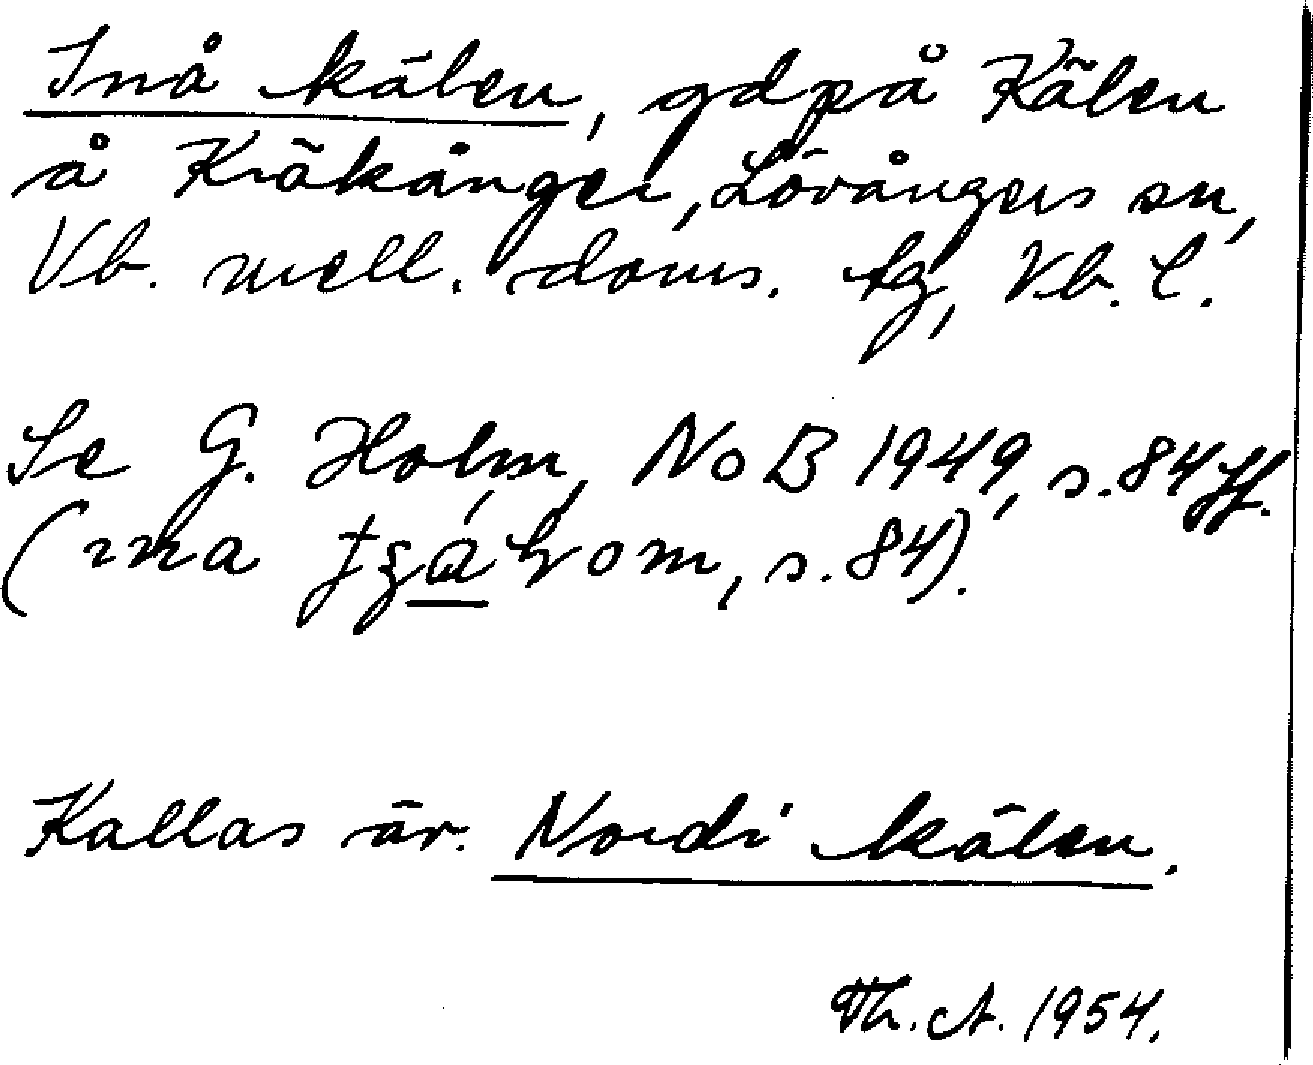 Inå kälen, gdpå Kälen
å Kräkånger, Lövångers sn,
Vb. mell. doms. tg, Vb. l.
Se G. Holm, NoB 1949, s. 84 ff.
(ina s. 84).
Kallas äv. Nordi kälen.
Th. A. 1954.